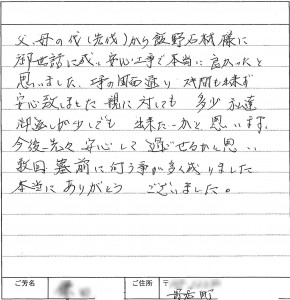 父母の代(先代)から飯野石材様に
御世話に成り安心工事で本当に良かったと
思いました、工事の図面通り 残間も出来ず
安心致しました 親に対しても 多少 私達
御返しが少しでも 出来たーかと 思います。
今後先々 安心して 過ごせるかと思い
数回 墓前に行う事が多く成りました
本当に ありがとう ございました。
ご芳名
ご住所 〒
町